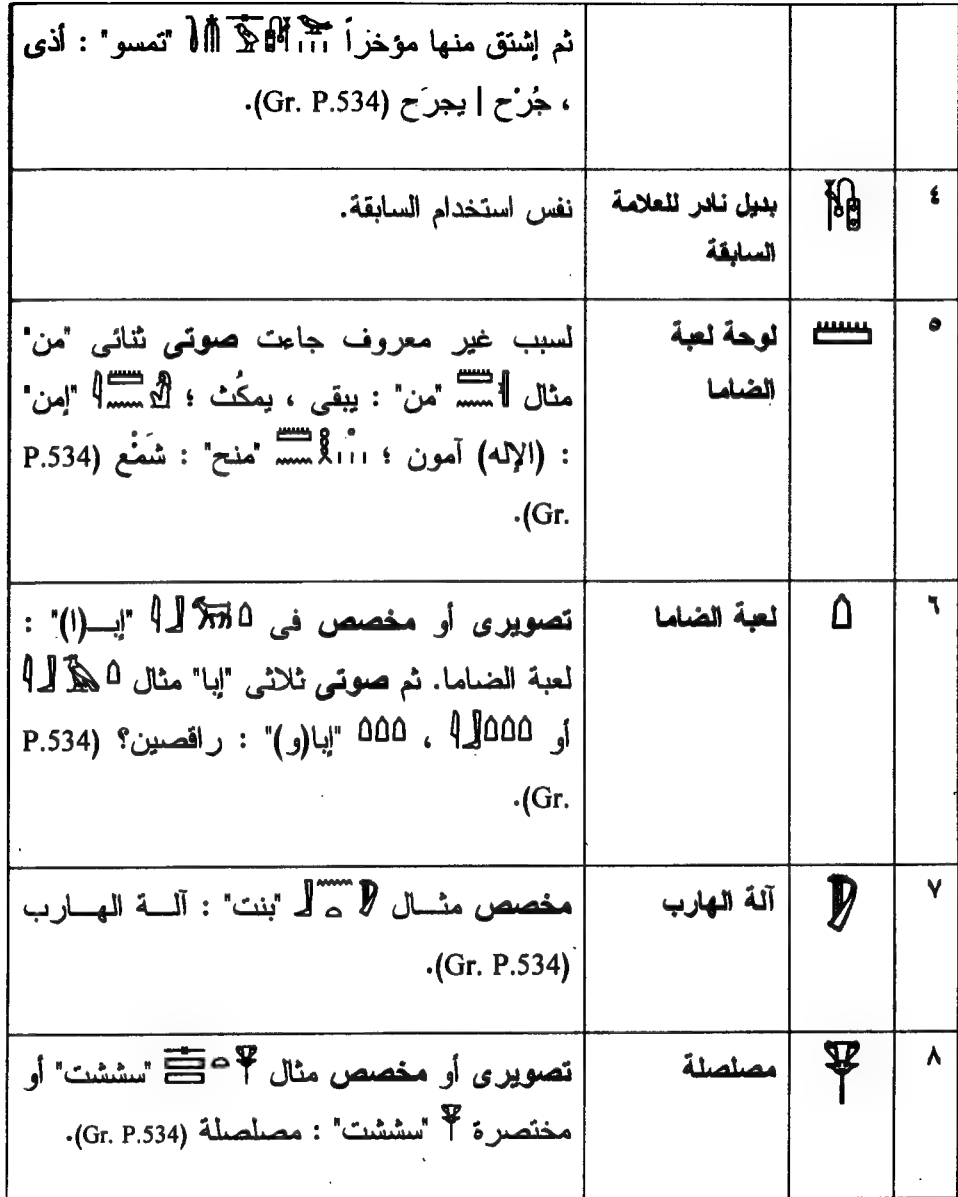 ثم إشتق منها مؤخراً "تمسو" : أذى
، جُرْح | يجرَح (Gr. P.534).
٤ بديل نادر للعلامة السابقة نفس استخدام السابقة.
٥ لوحة لعبة الضاما
لسبب غير معروف جاءت صوتى ثنائى "من"
مثال "من" : يبقى ، يمكُث ؛ "إمن"
: (الإله) آمون ؛ "منح" : شَمْع (P.534
Gr.).
٦ لعبة الضاما
تصويرى أو مخصص فى "إبـــ(ا)" :
لعبة الضاما. ثم صوتى ثلاثى "إبا" مثال
أو ، "إبا(و)" : راقصين؟ (P.534
Gr.).
٧ آلة الهارب
مخصص مثـــال "بنت" : آلـــة الهـــارب
(Gr. P.534).
٨ مصلصلة
تصويرى أو مخصص مثال "سششت" أو
مختصرة "سششت" : مصلصلة (Gr. P.534).